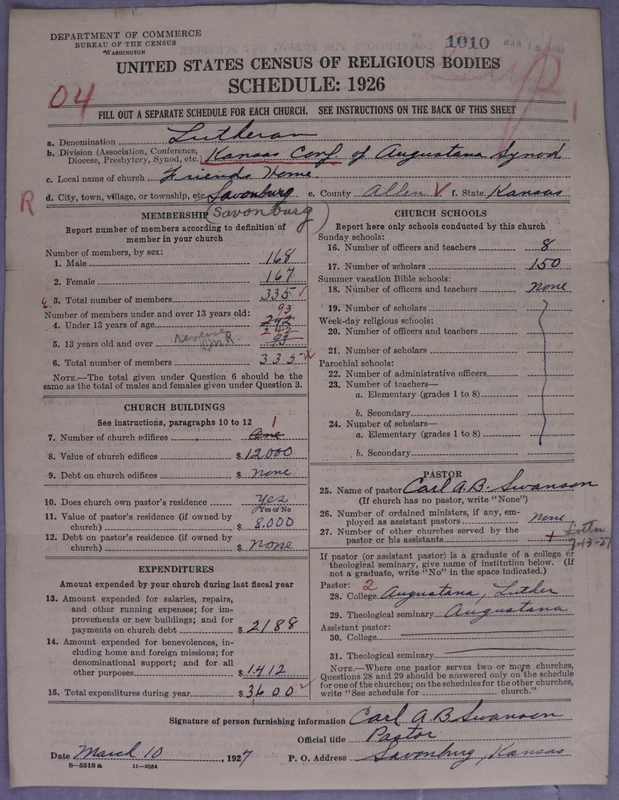 DEPARTMENT OF COMMERCE
BUREAU OF THE CENSUS
WASHINGTON
1010
UNITED STATES CENSUS OF RELIGIOUS BODIES
SCHEDULE: 1926
04
FILL OUT A SEPARATE SCHEDULE FOR EACH CHURCH. SEE INSTRUCTIONS ON THE BACK OF THIS SHEET
a. Denomination Lutheran
b. Division (Association, Conference, Diocese, Presbytery, Synod, etc.) Kansas Conf. of Augustana Synod
c. Local name of church Friends Home
d. City, town, village, or township, etc. Savonburg e. County Allen f. State Kansas
R
(Savonburg)
MEMBERSHIP
Report number of members according to definition of
member in your church
Number of members, by sex:
1. Male 168
2. Female 167
3. Total number of members 335
Number of members under and over 13 years old:
4. Under 13 years of age 242 93
5. 13 years old and over 93 242
6. Total number of members 335
NOTE.—The total given under Question 6 should be the
same as the total of males and females given under Question 3.
CHURCH BUILDINGS
See instructions, paragraphs 10 to 12
7. Number of church edifices One 1
8. Value of church edifices $ 12000
9. Debt on church edifices $ None
10. Does church own pastor's residence Yes
Yes or No
11. Value of pastor's residence (if owned by
church) $ 8.000
12. Debt on pastor's residence (if owned by
church) $ None
EXPENDITURES
Amount expended by your church during last fiscal year
13. Amount expended for salaries, repairs,
and other running expenses; for im-
provements or new buildings; and for
payments on church debt $ 2188
14. Amount expended for benevolences, in-
cluding home and foreign missions; for
denominational support; and for all
other purposes $ 1412
15. Total expenditures during year $ 3600
CHURCH SCHOOLS
Report here only schools conducted by this church
Sunday schools:
16. Number of officers and teachers 8
17. Number of scholars 150
Summer vacation Bible schools:
18. Number of officers and teachers None
19. Number of scholars
Week-day religious schools:
20. Number of officers and teachers
21. Number of scholars
Parochial schools:
22. Number of administrative officers
23. Number of teachers—
a. Elementary (grades 1 to 8)
b. Secondary
24. Number of scholars—
a. Elementary (grades 1 to 8)
b. Secondary
PASTOR
25. Name of pastor Carl A. B. Swanson
(If church has no pastor, write "None")
26. Number of ordained ministers, if any, em-
ployed as assistant pastors None
27. Number of other churches served by the
pastor or his assistants
If pastor (or assistant pastor) is a graduate of a college or
theological seminary, give name of institution below. (If
not a graduate, write "No" in the space indicated.)
Pastor: 2
28. College Augustana, Luther
29. Theological seminary Augustana
Assistant pastor:
30. College
31. Theological seminary
NOTE.—Where one pastor serves two or more churches,
Questions 28 and 29 should be answered only on the schedule
for one of the churches; on the schedules for the other churches,
write "See schedule for church."
Signature of person furnishing information Carl A B Swanson
Official title Pastor
Date March 10, 1927 P. O. Address Savonburg, Kansas
8—5518 a 11—9054